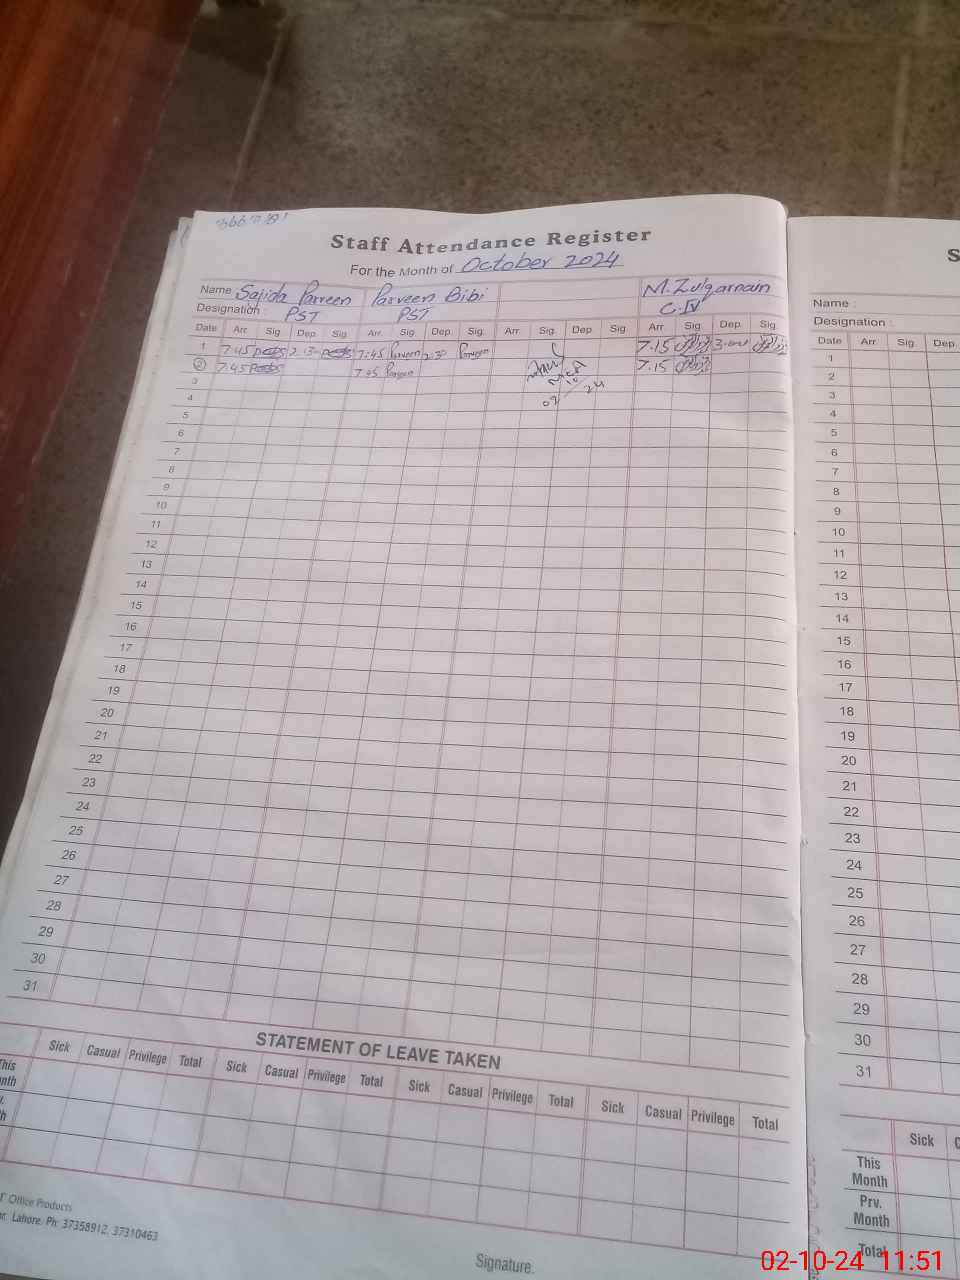 Staff Attendance Register
For the Month of October 2024
Name Sajida Parveen Parveen Bibi M. Zulqarnain
Designation : PST PST C.IV
Date Arr. Sig. Dep. Sig. Arr. Sig. Dep. Sig. Arr. Sig. Dep. Sig. Arr. Sig. Dep. Sig.
1 7:45 7:45 Parveen 2:30 Parveen 7.15
2 7:45 7:45 Parveen 7.15
MEA
02/10/24
3
4
5
6
7
8
9
10
11
12
13
14
15
16
17
18
19
20
21
22
23
24
25
26
27
28
29
30
31
STATEMENT OF LEAVE TAKEN
Sick Casual Privilege Total Sick Casual Privilege Total Sick Casual Privilege Total Sick Casual Privilege Total
This
nth
v.
h
Office Products
Lahore. Ph: 37358912, 37310463
Signature.
S
Name :
Designation :
Date Arr. Sig. Dep.
1
2
3
4
5
6
7
8
9
10
11
12
13
14
15
16
17
18
19
20
21
22
23
24
25
26
27
28
29
30
31
Sick C
This
Month
Prv.
Month
Total
02-10-24 11:51